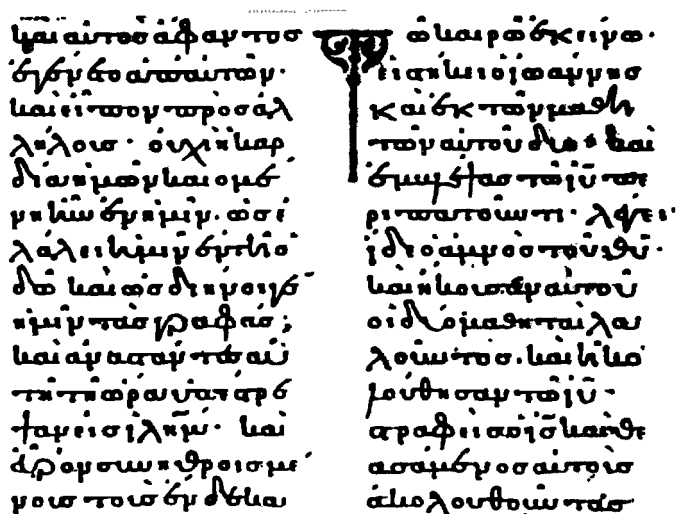 καὶ αὐτὸσ ἄφαντοσ
ἐγένετο ἀπ αὐτῶν·
καὶ εἶπον πρὸσ ἀλ
λήλουσ· οὐχὶ ἡ καρ
δία ἡμῶν καιομέ
νη ἦν ἐν ἡμῖν· ὡσ ἐ
λάλει ἡμῖν ἐν τῆ ὁ
δῶ καὶ ὡσ διήνοιγε
ἡμῖν τὰσ γραφάσ;
καὶ ἀναστάντεσ αὐ
τῆ τῆ ὥρα ὑπέστρε
ψαν εἰσ ἰλῆμ· καὶ
εὗρον συνηθροισμέ
νουσ τοὺσ ἕνδεκα
Τῶ καιρῶ ἐκείνω·
εἱστήκει ὁ ἰωάννησ
καὶ ἐκ τῶν μαθη
τῶν αὐτοῦ δύο· καὶ
ἐμβλέψασ τῶ ἰῦ πε
ριπατοῦντι· λέγει·
ἴδε ὁ ἀμνὸσ τοῦ θῦ·
καὶ ἤκουσαν αὐτοῦ
οἱ δύο μαθηταὶ λα
λοῦντοσ· καὶ ἠκο
λούθησαν τῶ ἰῦ·
στραφεὶσ ὁ ἰσ καὶ θε
ασάμενοσ αὐτοὺσ
ἀκολουθοῦντασ